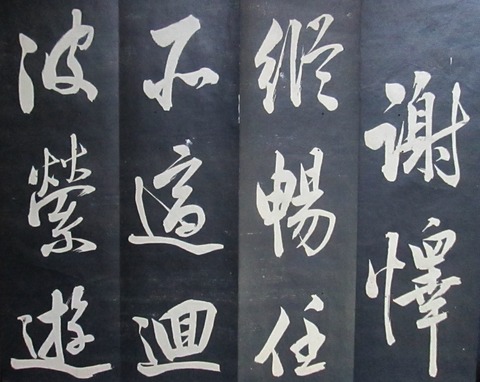 謝懌
縱暢任
所適迴
波縈遊